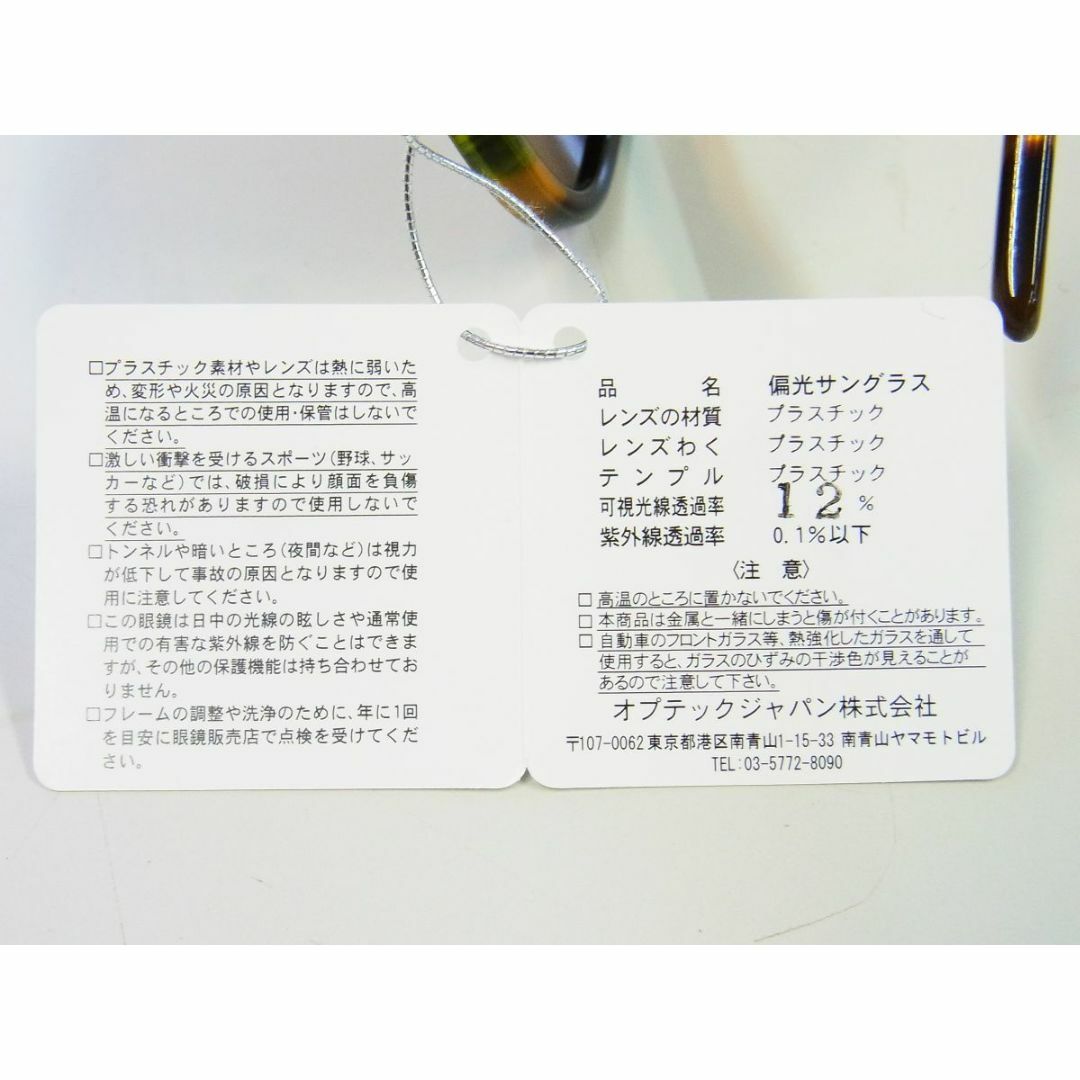 □プラスチック素材やレンズは熱に弱いた
め、変形や火災の原因となりますので、高
温になるところでの使用・保管はしないで
ください。
□激しい衝撃を受けるスポーツ(野球、サッ
カーなど)では、破損により顔面を負傷
する恐れがありますので使用しないで
ください。
□トンネルや暗いところ(夜間など)は視力
が低下して事故の原因となりますので使
用に注意してください。
□この眼鏡は日中の光線の眩しさや通常使
用での有害な紫外線を防ぐことはできま
すが、その他の保護機能は持ち合わせてお
りません。
□フレームの調整や洗浄のために、年に1回
を目安に眼鏡販売店で点検を受けてくだ
さい。
品 名 偏光サングラス
レンズの材質 プラスチック
レンズわく プラスチック
テンプル プラスチック
可視光線透過率 12%
紫外線透過率 0.1%以下
〈注 意〉
□ 高温のところに置かないでください。
□ 本商品は金属と一緒にしまうと傷が付くことがあります。
□ 自動車のフロントガラス等、熱強化したガラスを通して
使用すると、ガラスのひずみの干渉色が見えることが
あるので注意して下さい。
オプテックジャパン株式会社
〒107-0062 東京都港区南青山1-15-33 南青山ヤマモトビル
TEL:03-5772-8090